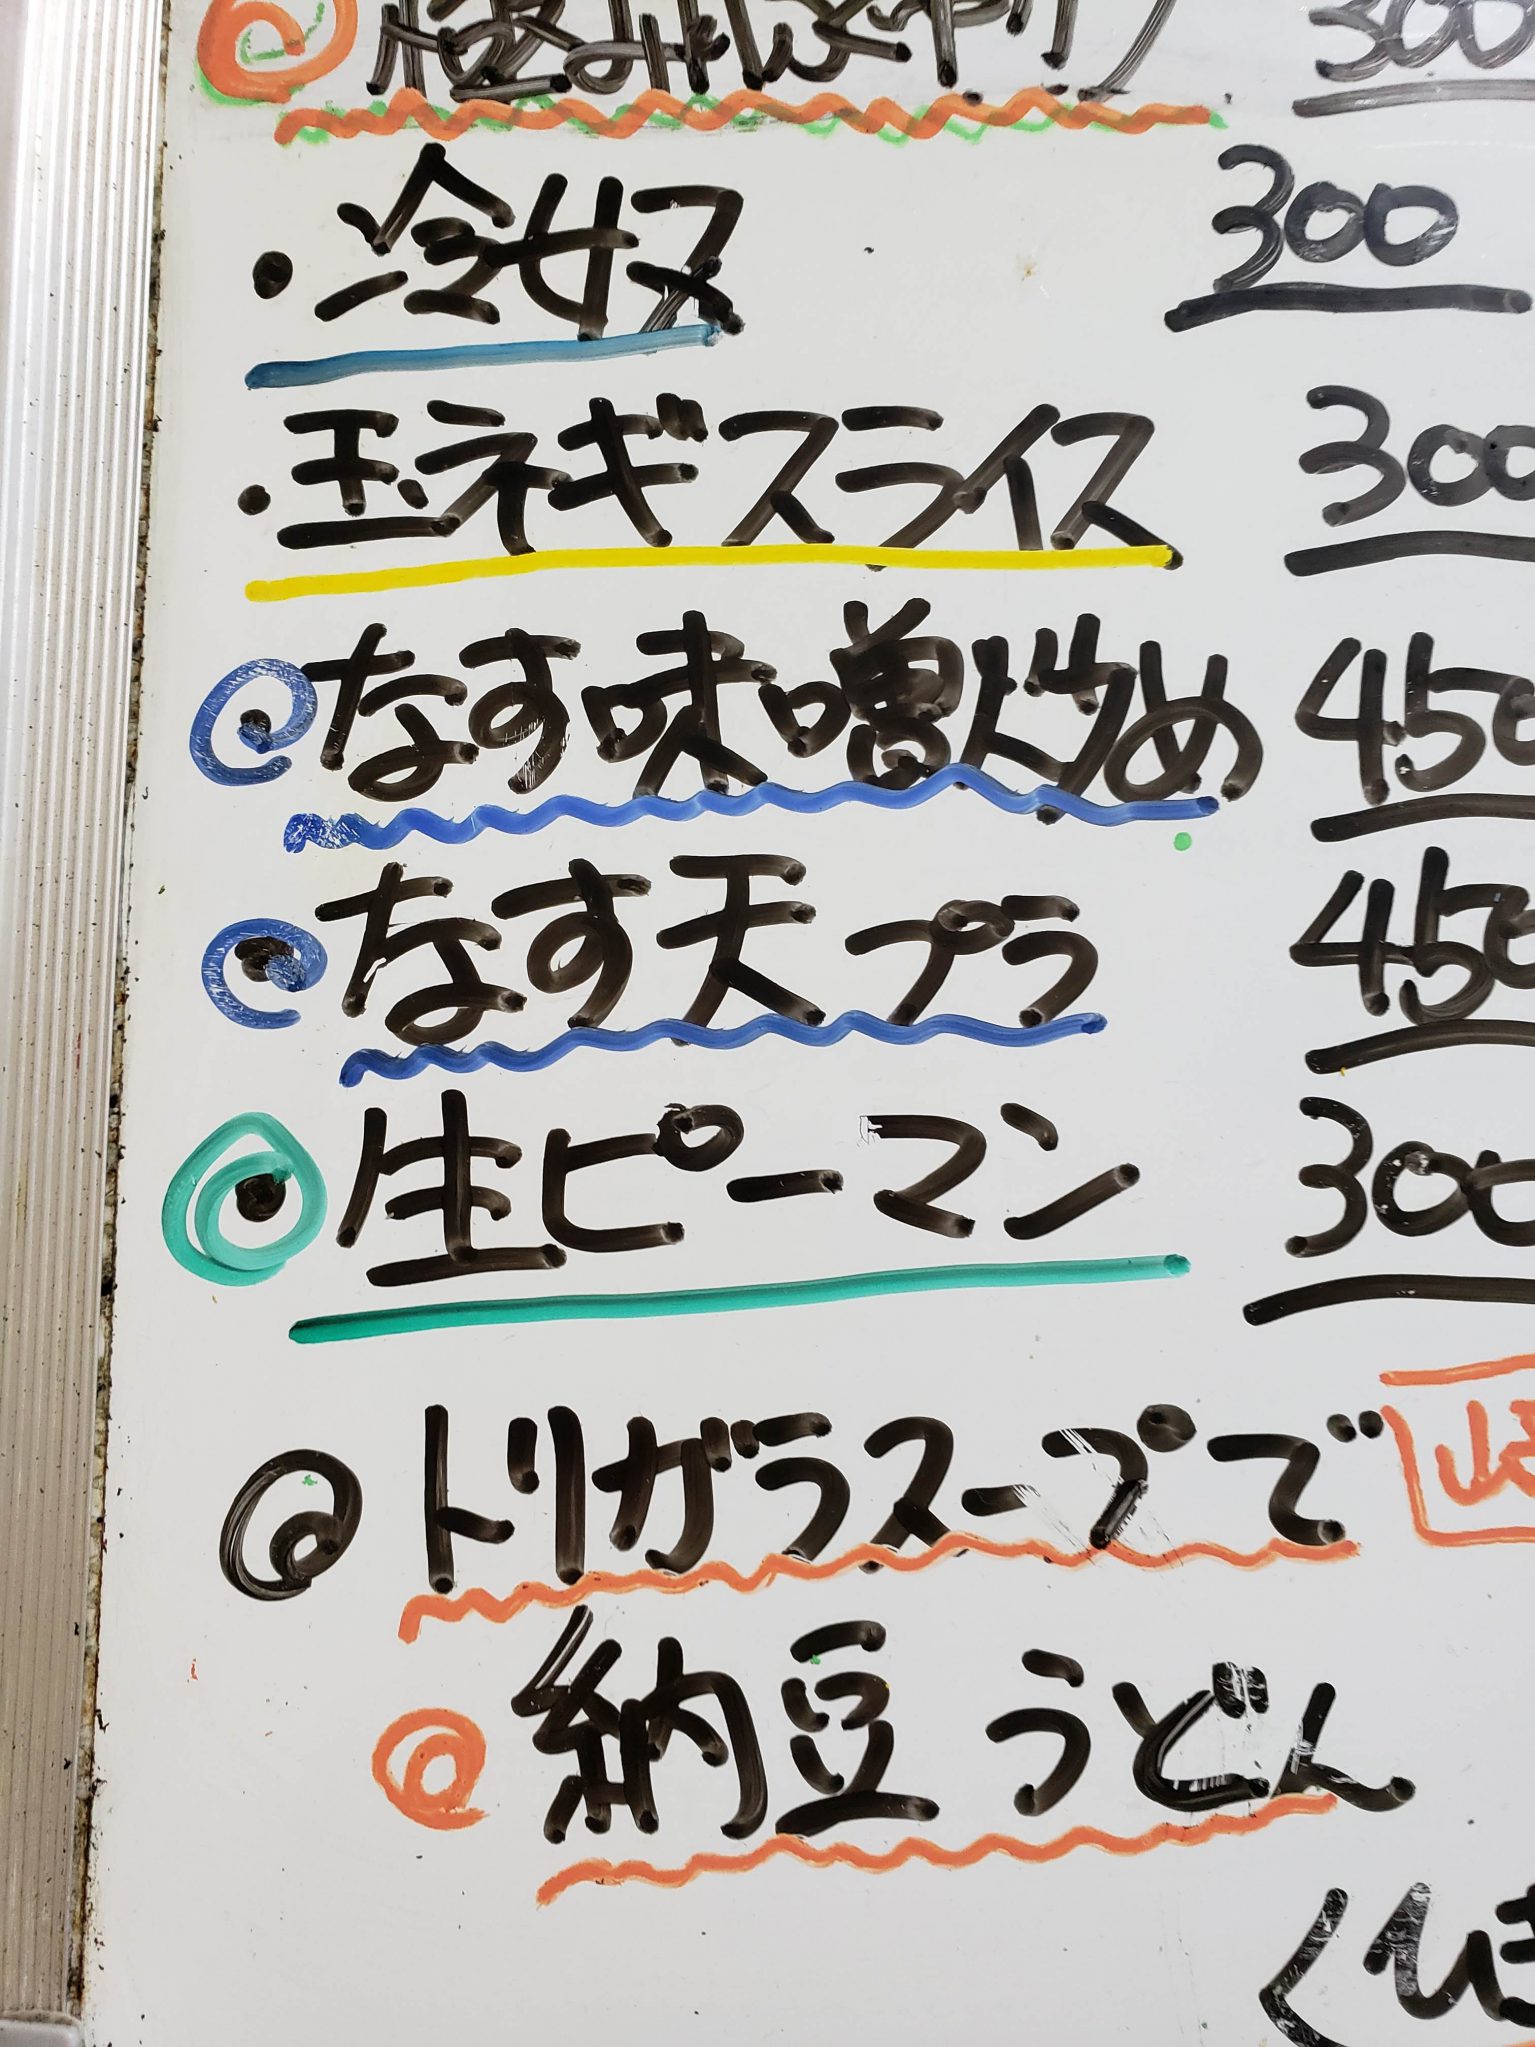 300
・冷奴 300
・玉ネギスライス 300
・なす味噌炒め 450
・なす天プラ 450
・生ピーマン 300
トリガラスープで
納豆うどん